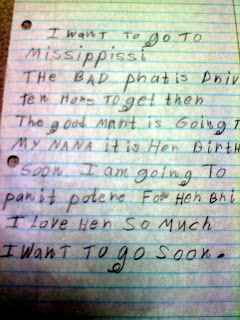 I WANT To go To
Mississippissi
THE BAD phat is Driv
Ten Hors To get then
The good Mant is Going T
MY NANA it is Her BirtH
Soon I am going To
panit potene For Her Bhi
I Love Her So Much
I WanT To go Soon.